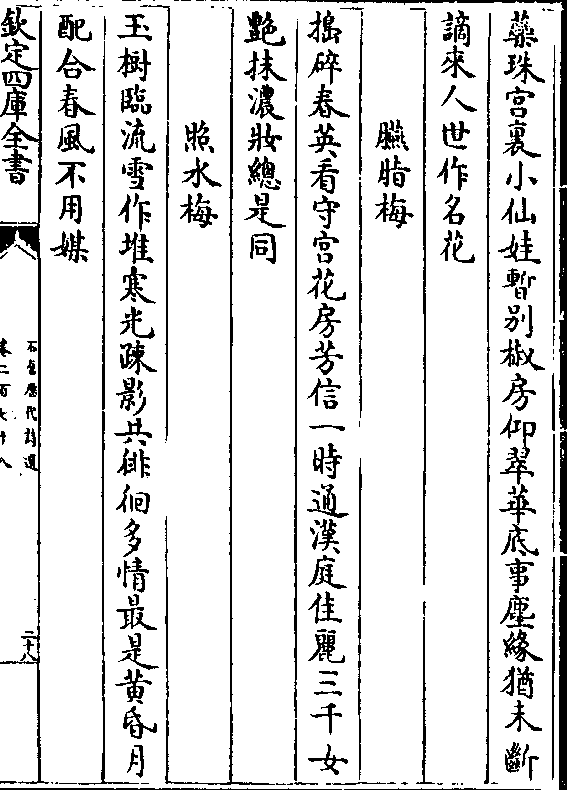 蘂珠宮裏小仙娃暫别椒房仰翠華底事塵緣猶未斷
謫來人世作名花
臙脂梅
搗碎春英看守宮花房芳信一時通漢庭佳麗三千女
艶抹濃妝總是同
照水梅
玉樹臨流雪作堆寒光疎影共徘徊多情最是黄昏月
配合春風不用媒
欽定四庫全書
石倉歷代詩選
二十八